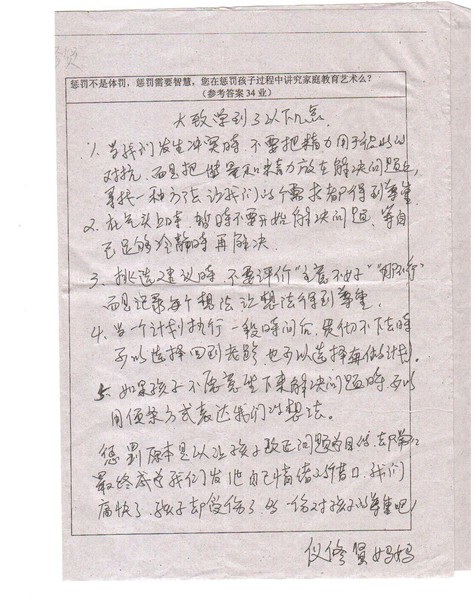 惩罚不是体罚，惩罚需要智慧，您在惩罚孩子过程中讲究家庭教育艺术么？
（参考答案34业）
大致学到了以下几点
1. 当我们发生冲突时 不要把精力用于彼此的
对抗，而是把 和精力放在解决问题上，
寻找一种方法 让我们的个需求都得到尊重
2. 在气头上时 暂时不要开始解决问题，等自
己足够冷静时再解决.
3. 挑选建议时，不要评价"主意不好""那不行"
而是记录每个想法 让想法得到尊重.
4. 当一个计划执行一段时间后，贯彻不下去时
可以选择回到老路 也可以选择 计划.
5. 如果孩子不愿意坐下来解决问题时 可以
用便条方式表达我们的想法.
惩罚原本是以让孩子改正问题为目的，却常常
最终成为我们发泄自己情绪的借口，我们
痛快了，孩子却受伤了 多一份对孩子的尊重吧！
仪修贤妈妈